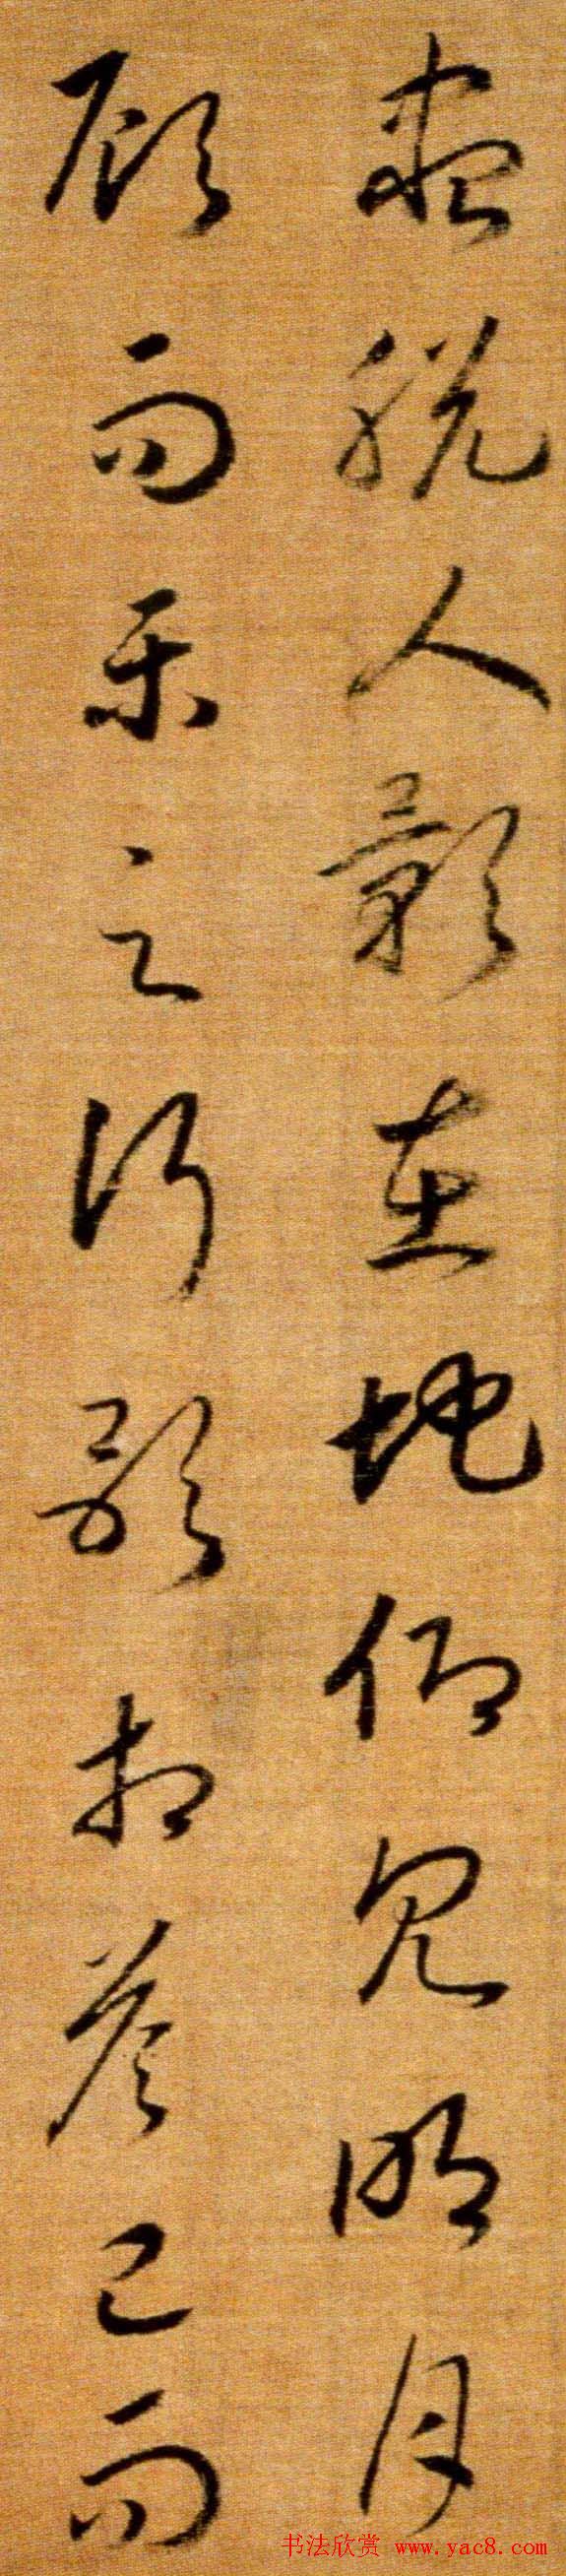 盡脱人影在地仰見明月
顧而樂之行歌相答已而
书法欣赏 www.yac8.com